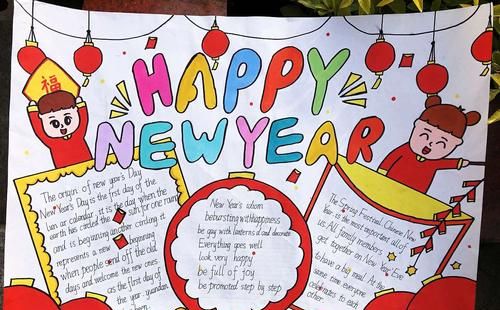 HAPPY
NEW YEAR
福
The origin of new year's Day
New Year's Day is the first day of the
lunar calendar. it is the day when the
earth has circled the sun for one round
and is beginning another circling it
represents a new beginning
when people end off the old
days and welcome the new ones
as the first day of
the year.
been
New Year's idiom
bebursting withhappiness
be gay with lanterns and decorate
Everything goes well
look very happy
be full of joy
be promoted step by step
The Spring Festival, Chinese New
Year is the most important all of
us. All family members
get together on New Year Eve
to have a big meal. At the
same time everyone
celebrates to each
other.